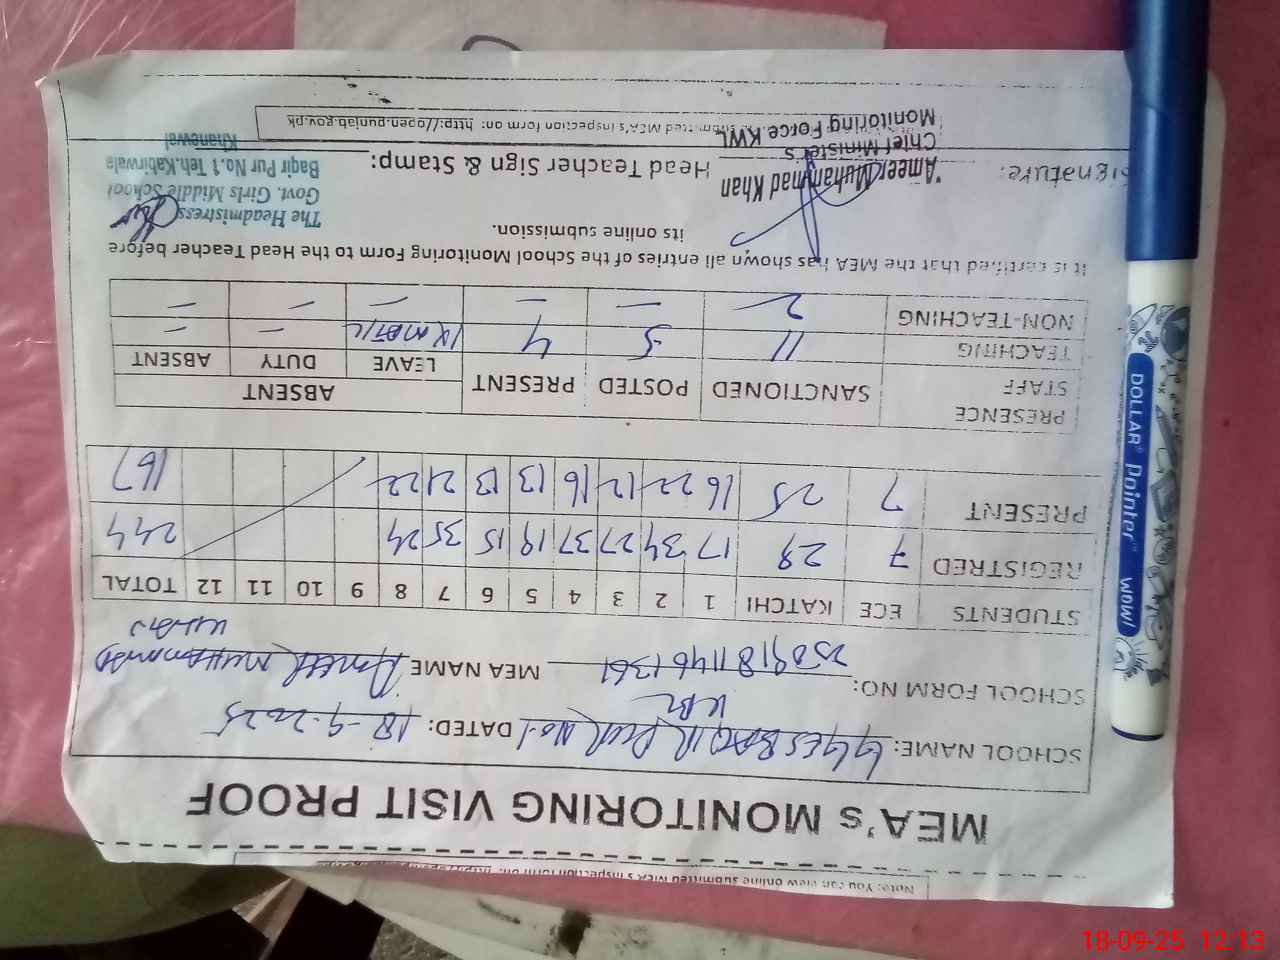 Note: You can view online submitted MEA's inspection form on:
MEA's MONITORING VISIT PROOF
SCHOOL NAME: GGES BAQIR PUR No.1 KBR DATED: 18-9-2025
SCHOOL FORM NO: MEA NAME AMEER MUHAMMAD KHAN
STUDENTS ECE KATCHI 1 2 3 4 5 6 7 8 9 10 11 12 TOTAL
REGISTRED 7 28 17 34 27 37 19 15 35 24 244
PRESENT 7 25 16 22 12 16 13 13 21 22 167
PRESENCE STAFF SANCTIONED POSTED PRESENT ABSENT
LEAVE DUTY ABSENT
TEACHING 11 5 4 - -
NON-TEACHING 2 - - - - -
It is certified that the MEA has shown all entries of the School Monitoring Form to the Head Teacher before
its online submission.
Signature: Head Teacher Sign & Stamp:
Ameer Muhammad Khan
Chief Minister's
Monitoring Force KWL
The Headmistress
Govt. Girls Middle School
Baqir Pur No.1 Teh.Kabirwala
Khanewal
submitted MEA's inspection form on: http://open.punjab.gov.pk
DOLLAR Pointer WOW!
18-09-25 12:13